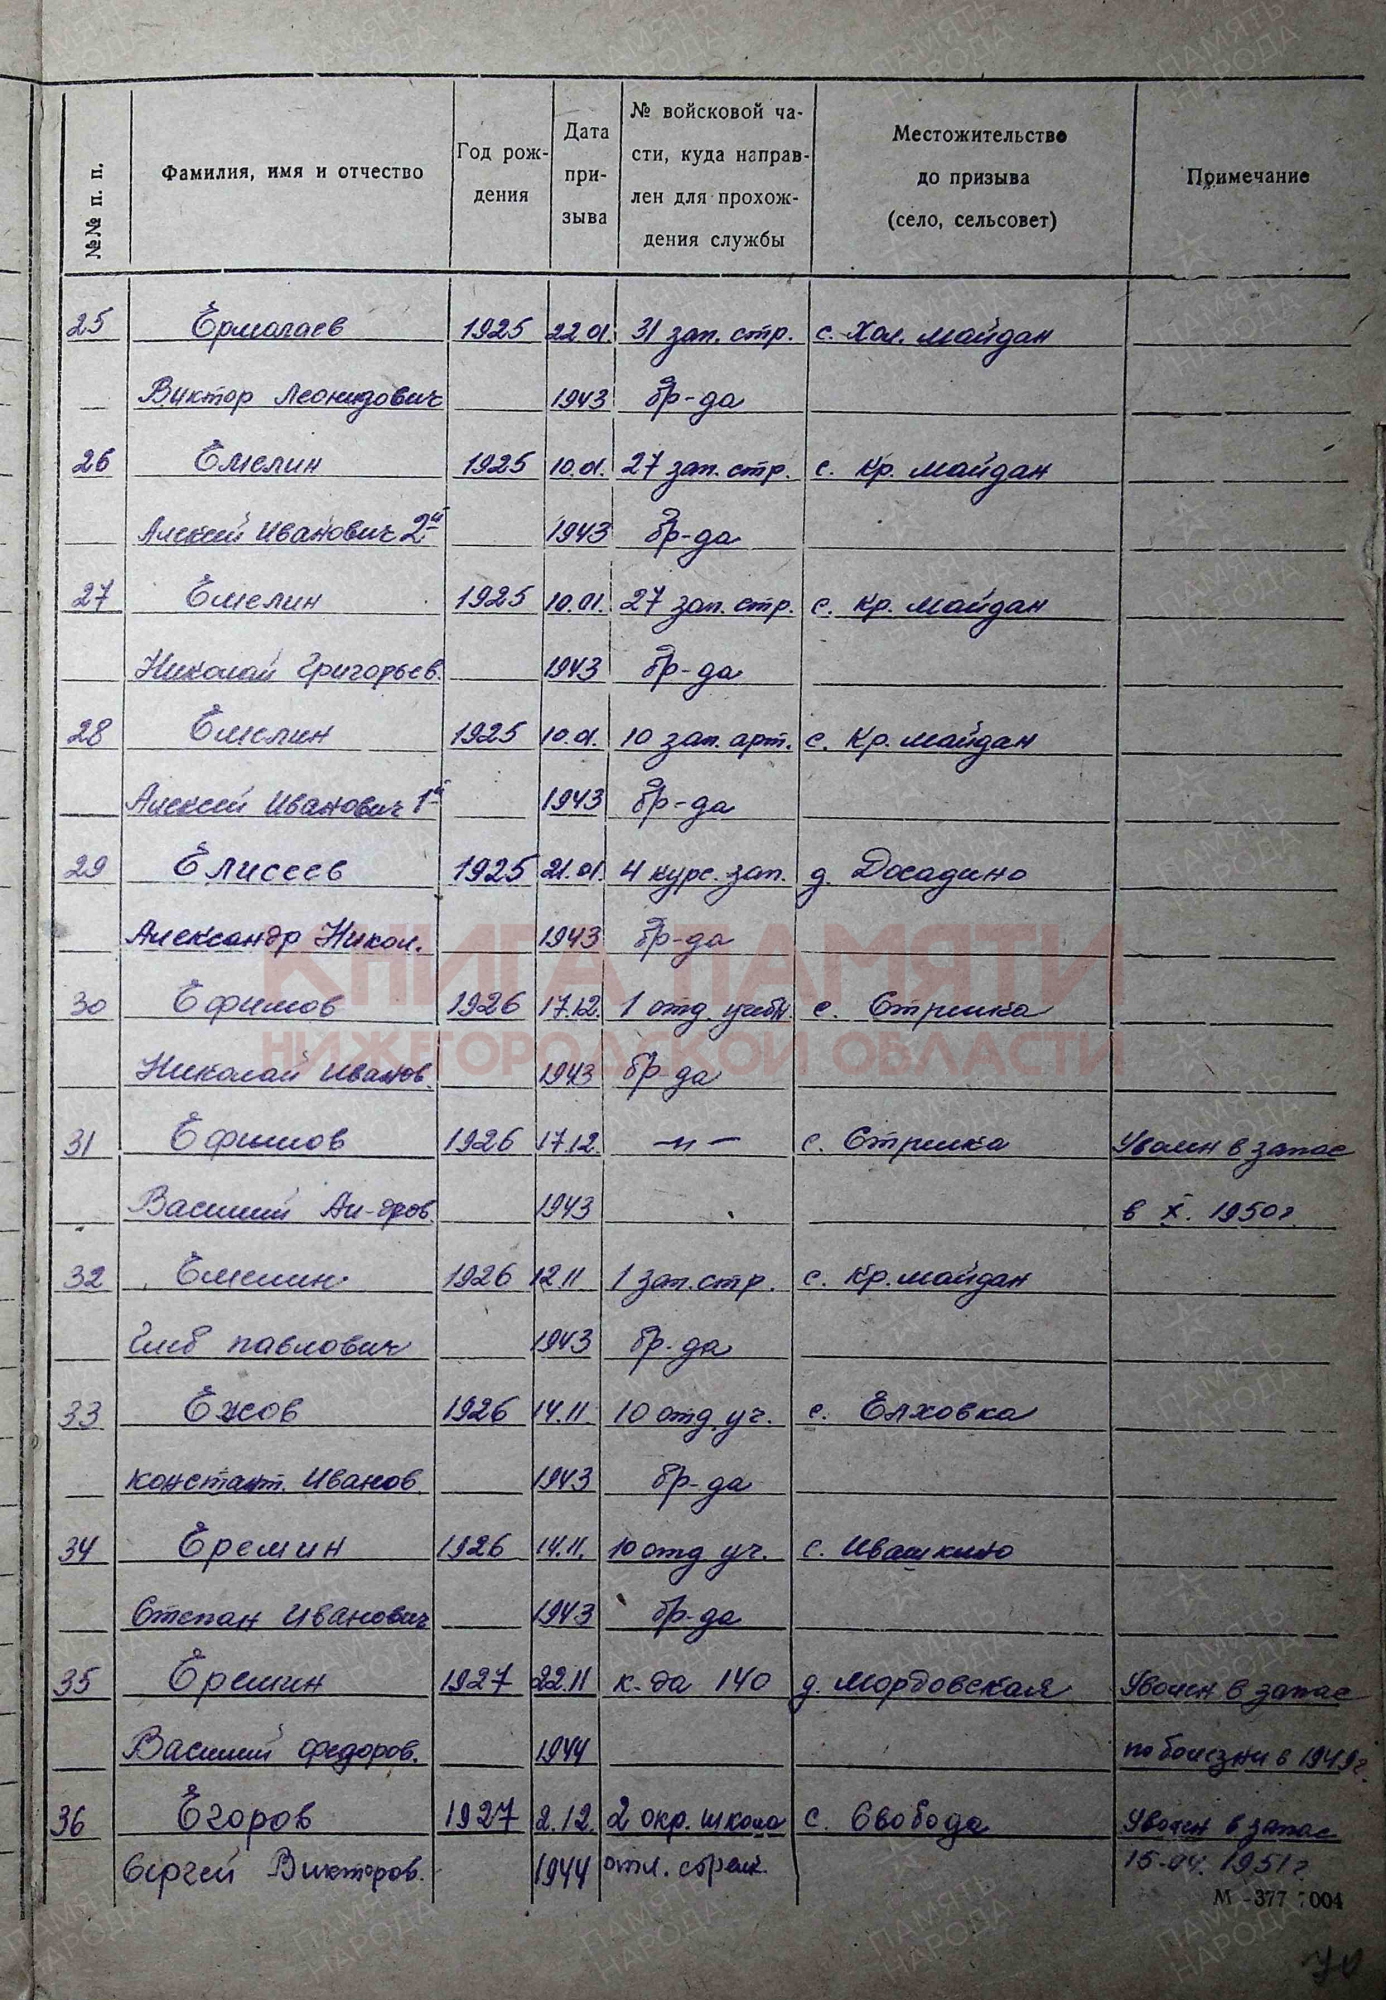 №№ п. п.
Фамилия, имя и отчество
Год рож-
дения
Дата
при-
зыва
№ войсковой ча-
сти, куда направ-
лен для прохож-
дения службы
Местожительство
до призыва
(село, сельсовет)
Примечание
25 Ермолаев 1925 22.01. 31 зап. стр. с. Хол. Майдан
Виктор Леонидович 1943 бр-да
26 Емелин 1925 10.01. 27 зап. стр. с. Кр. Майдан
Алексей Иванович 2й 1943 бр-да
27 Емелин 1925 10.01. 27 зап. стр. с. Кр. Майдан
Николай Григорьев. 1943 бр-да
28 Емелин 1925 10.01. 10 зап. арт. с. Кр. Майдан
Алексей Иванович 1й 1943 бр-да
29 Елисеев 1925 21.01. 4 курс. зап. д. Досадино
Александр Никол. 1943 бр-да
КНИГА ПАМЯТИ
30 Ефимов 1926 17.12. 1 отд. учебн. с. Стрелка
НИЖЕГОРОДСКОЙ ОБЛАСТИ
Николай Иванов. 1943 бр-да
31 Ефимов 1926 17.12. —"— с. Стрелка Уволен в запас
Василий Ал-дров. 1943 в X. 1950г.
32 Емелин 1926 12.11 1 зап. стр. с. Кр. Майдан
Глеб Павлович 1943 бр-да
33 Ежов 1926 14.11. 10 отд. уч. с. Елховка
Констант. Иванов. 1943 бр-да
34 Еремин 1926 14.11. 10 отд уч. с. Ивашкино
Степан Иванович 1943 бр-да
35 Еремин 1927 22.11 к-да 140 д. Мордовская Уволен в запас
Василий Федоров. 1944 по болезни в 1949г.
36 Егоров 1927 2.12. 2 окр. школа с. Свобода Уволен в запас
Сергей Викторов. 1944 отл. стрелк. 15.04. 1951г
М-377 7004
70
ПАМЯТЬ
НАРОДА